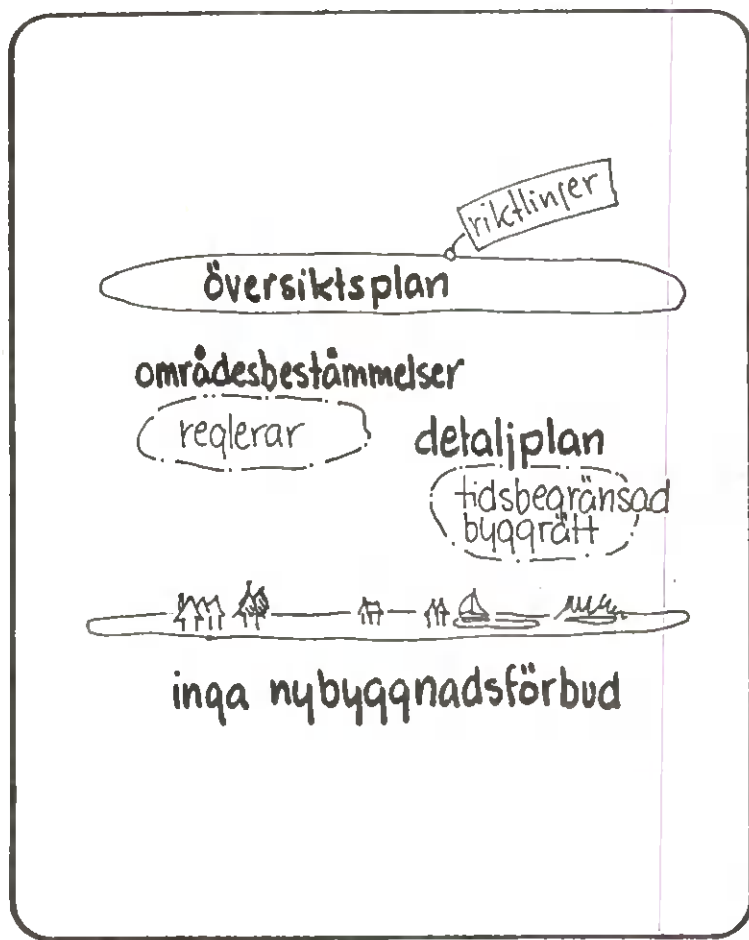 riktlinjer
översiktsplan
områdesbestämmelser
reglerar
detaljplan
tidsbegränsad
byggrätt
inga nybyggnadsförbud